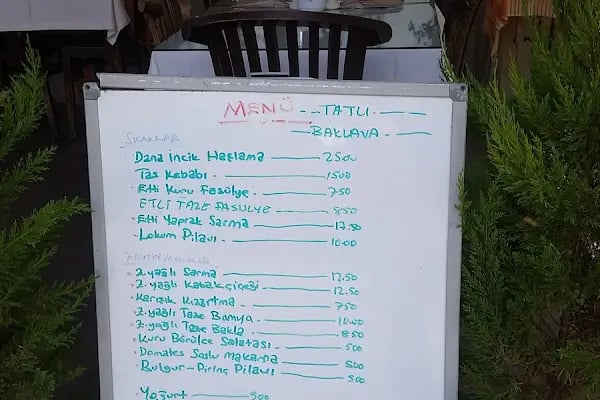 MENÜ - TATLI
BAKLAVA
SICAKLAR
Dana incik Haşlama 2500
Tas Kebabı 1500
Etli Kuru Fasulye 750
ETLİ TAZE FASULYE 850
Etli Yaprak Sarma 12.50
Lokum Pilavı 10.00
ZEYTİNYAĞLILAR
Z.yağlı Sarma 12.50
Z.yağlı Kabakçiçeği 12.50
Karışık Kızartma 750
Z.yağlı Taze Bamya 10.00
Z.yağlı Taze Bakla 850
Kuru Börülce Salatası 500
Domates Soslu Makarna 500
Bulgur-Pirinç Pilavı 500
Yoğurt 500